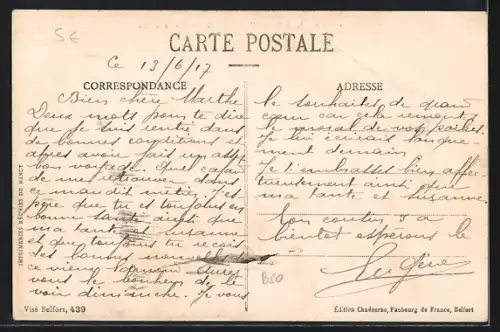 SE
CARTE POSTALE
Ce 13/6/17
CORRESPONDANCE
Bien chère Marthe
Deux mots pour te dire
que je suis rentré dans
de bonnes conditions et
apres avoir fait un assez
bon voyage. Que cafard
de me retrouver dans
ce maudit métier. J'es
père que tu es toujours en
bonne santé ainsi que
ma tante et Suzanne
et que toujours tu reçois
des bonnes nouvelles
ce vieux
vous le bonheur de le
voir dimanche. Je vous
ADRESSE
le souhaites de grand
cœur car cela remonte
le moral de vos poilus.
Je lui écrirais longue
ment demain
Je t'embrasses bien affec
tueusement ainsi que
ma tante et Suzanne.
Ton cousin
bientot esperons le
Eugène
B50
IMPRIMERIES RÉUNIES DE NANCY
Visé Belfort, 439
Édition Chadourne, Faubourg de France, Belfort